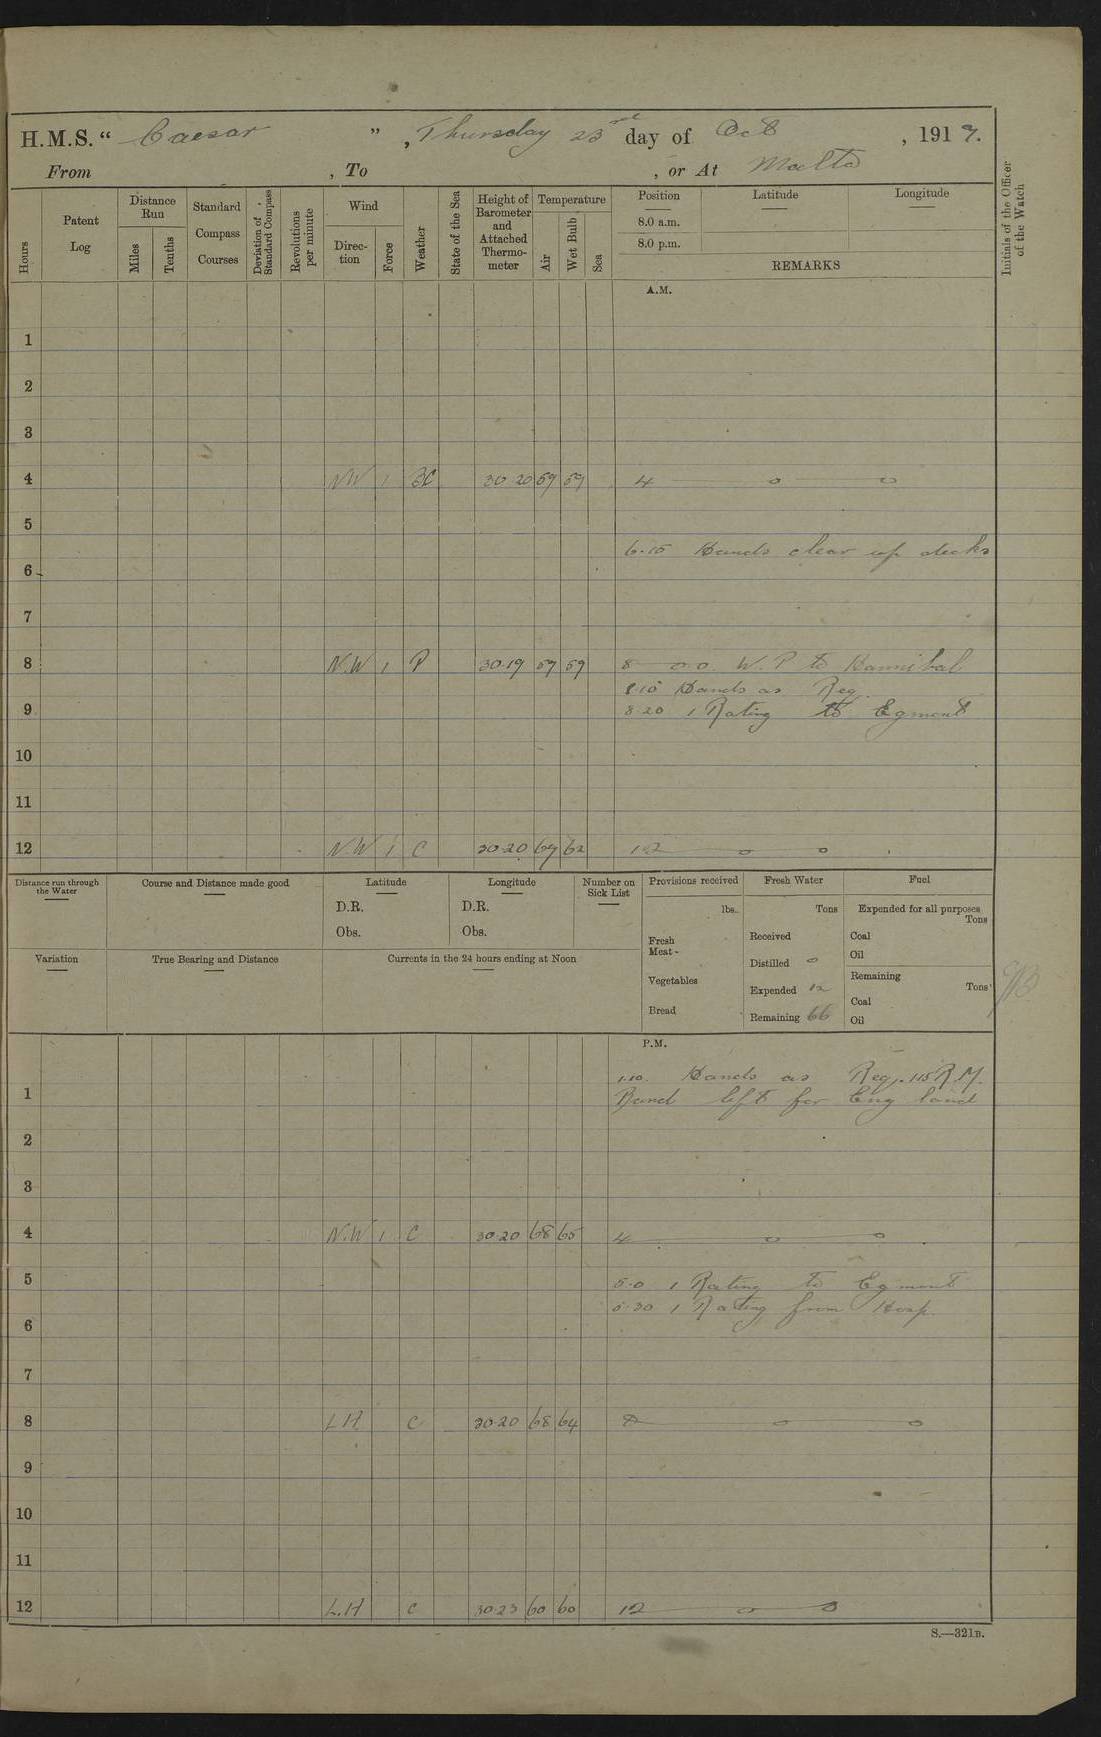 H.M.S. “ Caesar ”, Thursday 23rd day of Oct , 1919.
From , To , or At Malta
Hours
Patent Log
Distance Run
Miles
Tenths
Standard Compass Courses
Deviation of Standard Compass
Revolutions per minute
Wind
Direc-tion
Force
Weather
State of the Sea
Height of Barometer and Attached Thermo-meter
Temperature
Air
Wet Bulb
Sea
Position
8.0 a.m.
8.0 p.m.
Latitude
Longitude
REMARKS
Initials of the Officer of the Watch
A.M.
1
2
3
4 NW 1 BC 30 20 59 59 4 o o
5
6.15 Hands clear up decks
6
7
8 N.W 1 P 30.19 59 59 8 o.o. W.P to Hannibal
8.15 Hands as Req.
9 8.20 1 Rating to Egmont
10
11
12 N.W 1 C 30.20 69 62 12 o o
Distance run through the Water
Course and Distance made good
Latitude
D.R.
Obs.
Longitude
D.R.
Obs.
Number on Sick List
Provisions received
lbs.
Fresh Meat
Vegetables
Bread
Fresh Water
Tons
Received
Distilled o
Expended 12
Remaining 66
Fuel
Expended for all purposes
Tons
Coal
Oil
Remaining
Tons
Coal
Oil
Variation
True Bearing and Distance
Currents in the 24 hours ending at Noon
P.M.
1.10. Hands as Req. 1.15 R.M.
1 Band left for England
2
3
4 N.W 1 C 30.20 68 65 4 o o
5 5.0 1 Rating to Egmont
5.30 1 Rating from Hosp.
6
7
8 L.H C 30.20 68 64 8 o o
9
10
11
12 L.H C 30.23 60 60 12 o o
S.—321B.